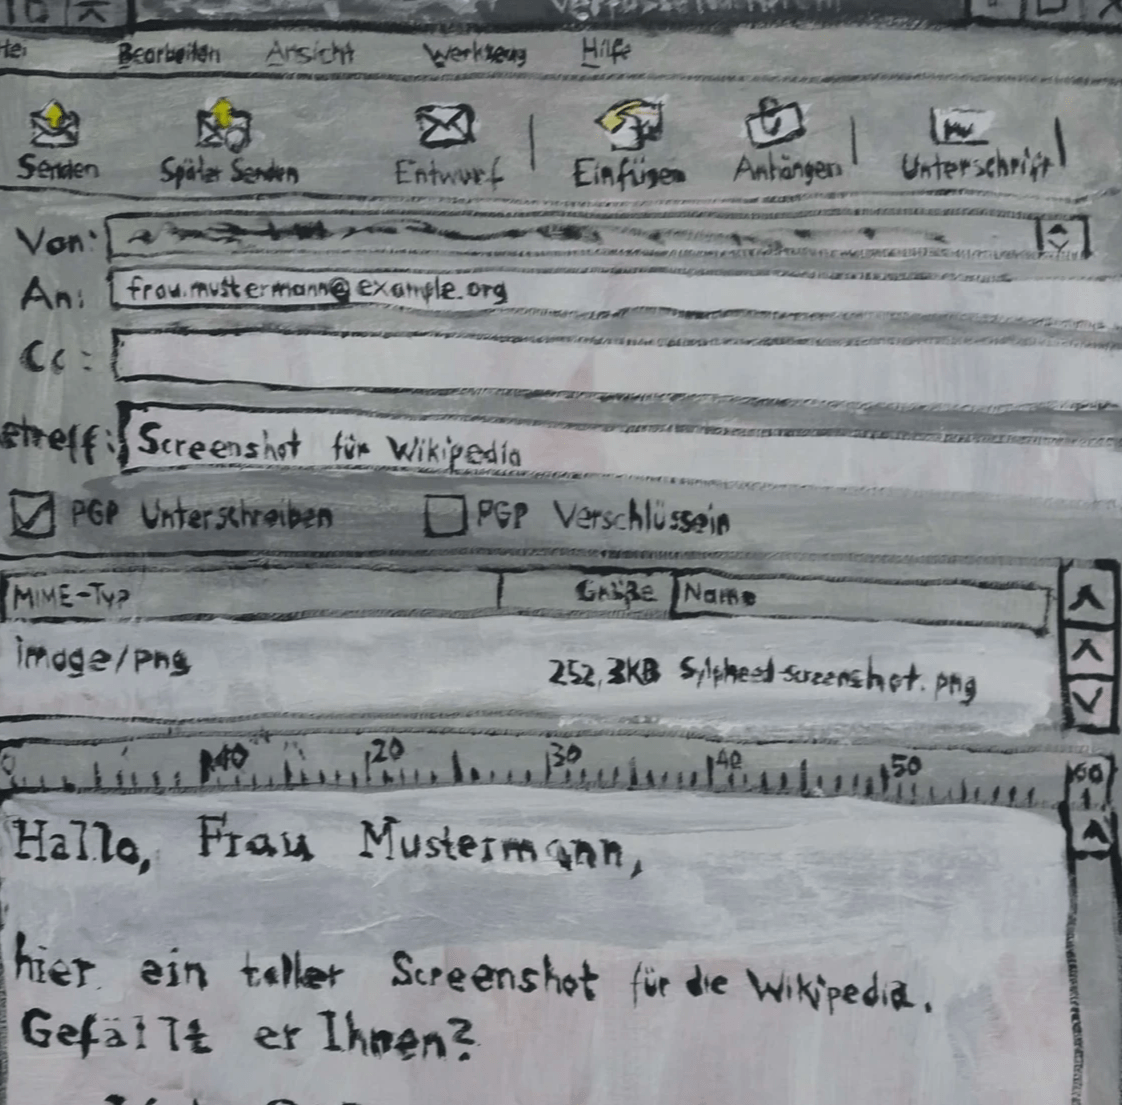 Bearbeiten Ansicht Werkzeug Hilfe
Senden Später Senden Entwurf Einfügen Anhängen Unterschrift
Von:
An: frau.mustermann@example.org
Cc:
etreff: Screenshot für Wikipedia
PGP Unterschreiben PGP Verschlüssein
MIME-Typ Größe Name
image/png 252,3KB Sylpheed-screenshot.png
0 10 20 30 40 50 60
Hallo, Frau Mustermann,
hier ein toller Screenshot für die Wikipedia.
Gefällt er Ihnen?